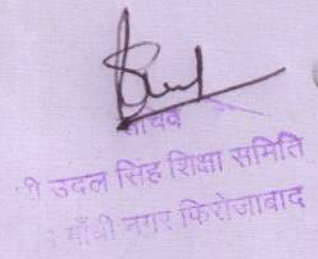 सचिव
श्री उदल सिंह शिक्षा समिति
गाँधी नगर फिरोजाबाद